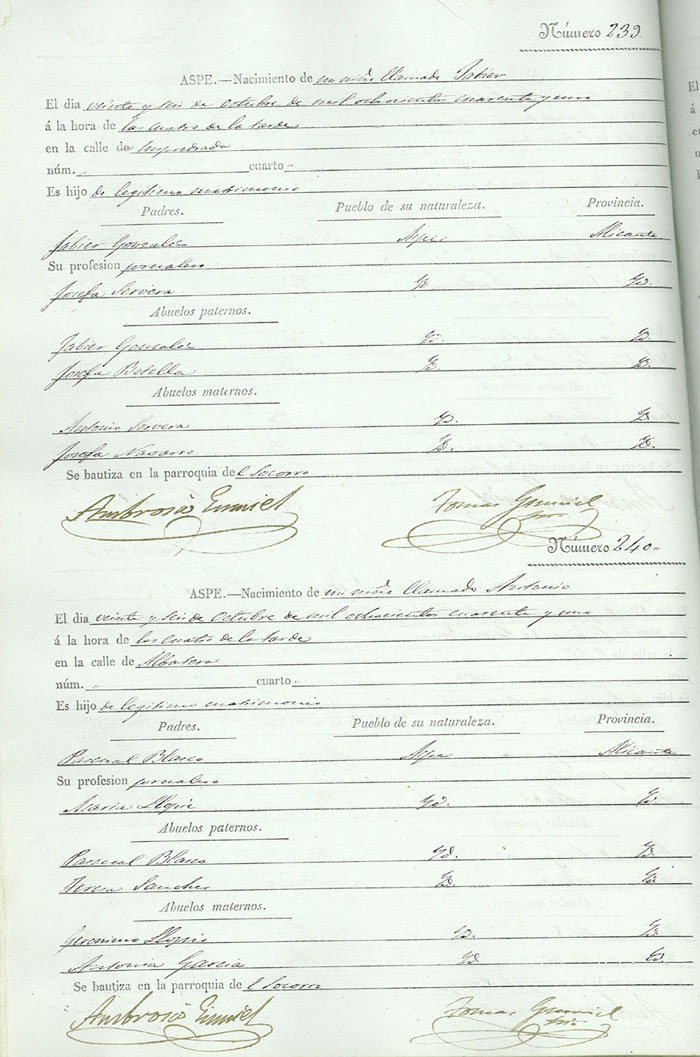 Número 239.
ASPE.—Nacimiento de un niño llamado Jabier
El dia veinte y seis de octubre de mil ochocientos cuarenta y uno
á la hora de las cuatro de la tarde
en la calle de
núm. " cuarto "
Es hijo de legitimo matrimonio
Padres. Pueblo de su naturaleza. Provincia.
Jabier Gonzales Aspe Alicante
Su profesion jornalero
Josefa Servera Yd. Yd.
Abuelos paternos.
Jabier Gonzales Yd. Yd.
Josefa Botella Yd. Yd.
Abuelos maternos.
Antonio Servera Yd. Yd.
Josefa Navarro Yd. Yd.
Se bautiza en la parroquia del Socorro
Ambrosio
Tomas
Número 240.
ASPE.—Nacimiento de un niño llamado Antonio
El dia veinte y seis de octubre de mil ochocientos cuarenta y uno
á la hora de las cuatro de la tarde
en la calle de Albatera
núm. " cuarto "
Es hijo de legitimo matrimonio
Padres. Pueblo de su naturaleza. Provincia.
Pascual Blasco Aspe Alicante
Su profesion jornalero
Maria Llopis Yd. Yd.
Abuelos paternos.
Pascual Blasco Yd. Yd.
Teresa Sanchez Yd. Yd.
Abuelos maternos.
Geronimo Llopis Yd. Yd.
Antonia Garcia Yd. Yd.
Se bautiza en la parroquia del Socorro
Ambrosio
Tomas